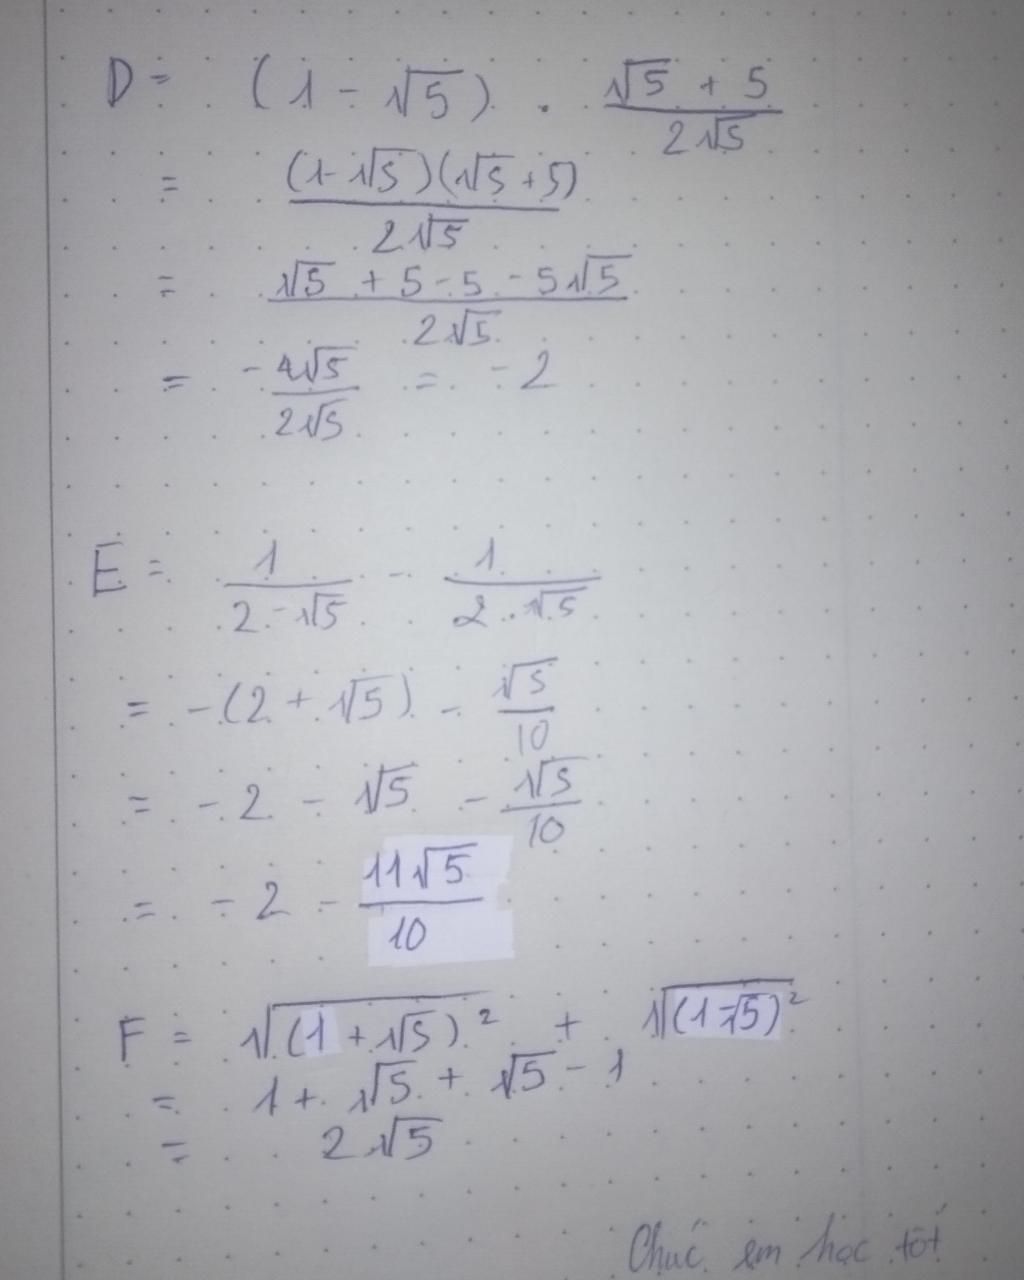 D = (1 - √5) . (√5 + 5)/(2√5)
= ((1-√5)(√5+5))/(2√5)
= (√5 + 5 - 5 - 5√5)/(2√5)
= -4√5/(2√5) = -2
E = 1/(2-√5) - 1/(2.√5)
= -(2+√5) - √5/10
= -2 - √5 - √5/10
= -2 - 11√5/10
F = √((1+√5)²) + √((1-√5)²)
= 1 + √5 + √5 - 1
= 2√5
Chúc em học tốt